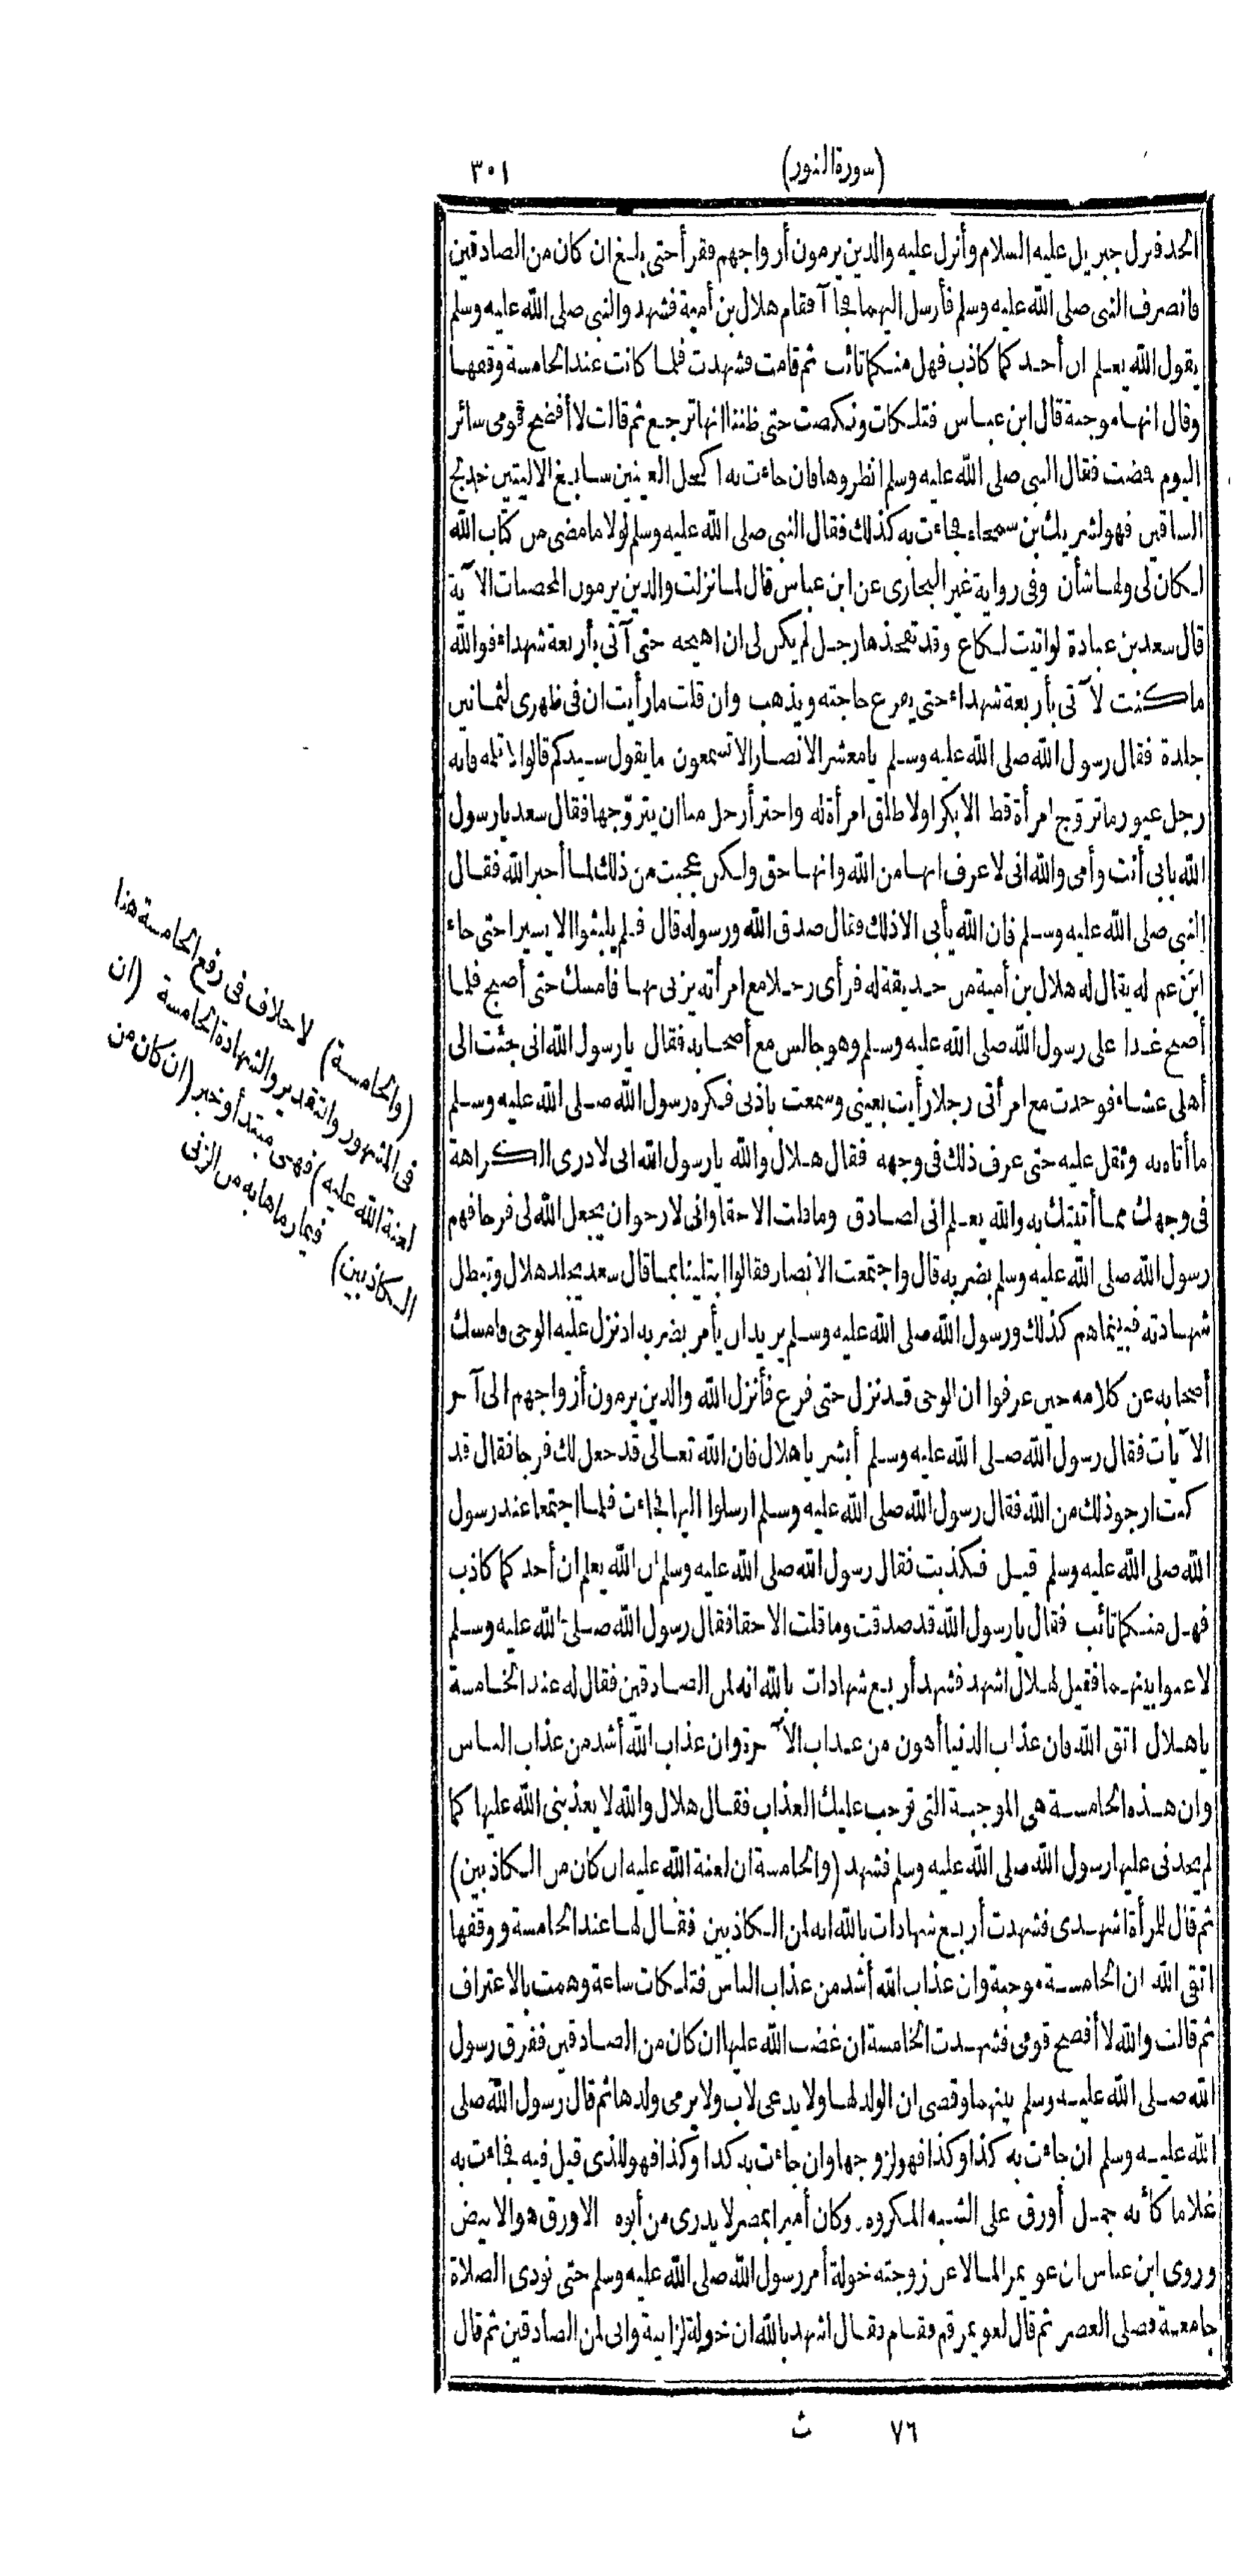 (سورة النور) ٣٠١
الحد فنزل جبريل عليه السلام وأنزل عليه والذين يرمون أزواجهم فقرأ حتى بلغ ان كان من الصادقين
فانصرف النبي صلى الله عليه وسلم فأرسل اليهما فجاآ فقام هلال بن أمية فشهد والنبي صلى الله عليه وسلم
يقول الله يعلم ان أحدكما كاذب فهل منكما تائب ثم قامت فشهدت فلما كانت عند الخامسة وقفها
وقال انها موجبة قال ابن عباس فتلكات ونكصت حتى ظننا انها ترجع ثم قالت لا أفضح قومي سائر
اليوم فمضت فقال النبي صلى الله عليه وسلم انظروها فان جاءت به اكحل العينين سابغ الاليتين خدلج
الساقين فهو لشريك بن سمحاء فجاءت به كذلك فقال النبي صلى الله عليه وسلم لولا ما مضى من كتاب الله
لكان لي ولها شأن وفي رواية غير البخاري عن ابن عباس قال لما نزلت والذين يرمون المحصنات الآية
قال سعد بن عبادة لو اتيت لكاع وقد تفخذها رجل لم يكن لي ان اهيجه حتى آتي بأربعة شهداء فوالله
ما كنت لآتي بأربعة شهداء حتى يفرغ حاجته ويذهب وان قلت ما رأيت ان في ظهري لثمانين
جلدة فقال رسول الله صلى الله عليه وسلم يا معشر الانصار الا تسمعون ما يقول سيدكم قالوا لا تلمه فانه
رجل غيور ما تزوّج امرأة قط الا بكرا ولا طلق امرأة له واجترأ رجل منا ان يتزوّجها فقال سعد يا رسول
الله بابي أنت وأمي والله اني لاعرف انها من الله وانها حق ولكن عجبت من ذلك لما أخبر الله فقال
النبي صلى الله عليه وسلم فان الله يأبى الا ذلك فقال صدق الله ورسوله قال فلم يلبثوا الا يسيرا حتى جاء
ابن عم له يقال له هلال بن أمية من حديقة له فرأى رجلا مع امرأته يزني بها فامسك حتى أصبح فلما
أصبح غدا على رسول الله صلى الله عليه وسلم وهو جالس مع أصحابه فقال يا رسول الله اني جئت الى
أهلي عشاء فوجدت مع امرأتي رجلا رأيت بعيني وسمعت باذني فكره رسول الله صلى الله عليه وسلم
ما أتاه به وثقل عليه حتى عرف ذلك في وجهه فقال هلال والله يا رسول الله اني لا درى الكراهة
في وجهك مما أتيتك به والله يعلم اني لصادق وما قلت الا حقا واني لارجو ان يجعل الله لي فرجا فهم
رسول الله صلى الله عليه وسلم بضربه قال واجتمعت الانصار فقالوا ابتلينا بما قال سعد يجلد هلال وتبطل
شهادته فبينما هم كذلك ورسول الله صلى الله عليه وسلم يريد ان يأمر بضربه اذ نزل عليه الوحي فامسك
أصحابه عن كلامه حين عرفوا ان الوحي قد نزل حتى فرغ فأنزل الله والذين يرمون أزواجهم الى آخر
الآيات فقال رسول الله صلى الله عليه وسلم أبشر يا هلال فان الله تعالى قد جعل لك فرجا فقال قد
كنت ارجو ذلك من الله فقال رسول الله صلى الله عليه وسلم ارسلوا اليها فجاءت فلما اجتمعا عند رسول
الله صلى الله عليه وسلم قيل فكذبت فقال رسول الله صلى الله عليه وسلم ان الله يعلم ان أحدكما كاذب
فهل منكما تائب فقال يا رسول الله قد صدقت وما قلت الا حقا فقال رسول الله صلى الله عليه وسلم
لاعنوا بينهما فقيل لهلال اشهد فشهد أربع شهادات بالله انه لمن الصادقين فقال له عند الخامسة
يا هلال اتق الله فان عذاب الدنيا أهون من عذاب الآخرة وان عذاب الله أشد من عذاب الناس
وان هذه الخامسة هي الموجبة التي توجب عليك العذاب فقال هلال والله لا يعذبني الله عليها كما
لم يجلدني عليها رسول الله صلى الله عليه وسلم فشهد (والخامسة ان لعنة الله عليه ان كان من الكاذبين)
ثم قال للمرأة اشهدي فشهدت أربع شهادات بالله انه لمن الكاذبين فقال لها عند الخامسة ووقفها
اتقي الله ان الخامسة موجبة وان عذاب الله أشد من عذاب الناس فتلكات ساعة وهمت بالاعتراف
ثم قالت والله لا أفضح قومي فشهدت الخامسة ان غضب الله عليها ان كان من الصادقين ففرق رسول
الله صلى الله عليه وسلم بينهما وقضى ان الولد لها ولا يدعى لاب ولا يرمى ولدها ثم قال رسول الله صلى
الله عليه وسلم ان جاءت به كذا وكذا فهو لزوجها وان جاءت به كذا وكذا فهو للذي قيل فيه فجاءت به
غلاما كأنه جمل أورق على الشبه المكروه وكان أميرا بمصر لا يدرى من أبوه الاورق هو الابيض
وروى ابن عباس ان عويمر لما لاعن زوجته خولة أمر رسول الله صلى الله عليه وسلم حتى نودي الصلاة
جامعة فصلى العصر ثم قال لعويمر قم فقام فقال اشهد بالله ان خولة لزانية واني لمن الصادقين ثم قال
(والخامسة) لا خلاف في رفع الخامسة هنا
في المشهور والتقدير والشهادة الخامسة (ان
لعنة الله عليه) فهي مبتدأ وخبر (ان كان من
الكاذبين) فيما رماها به من الزنى
٧٦ ث